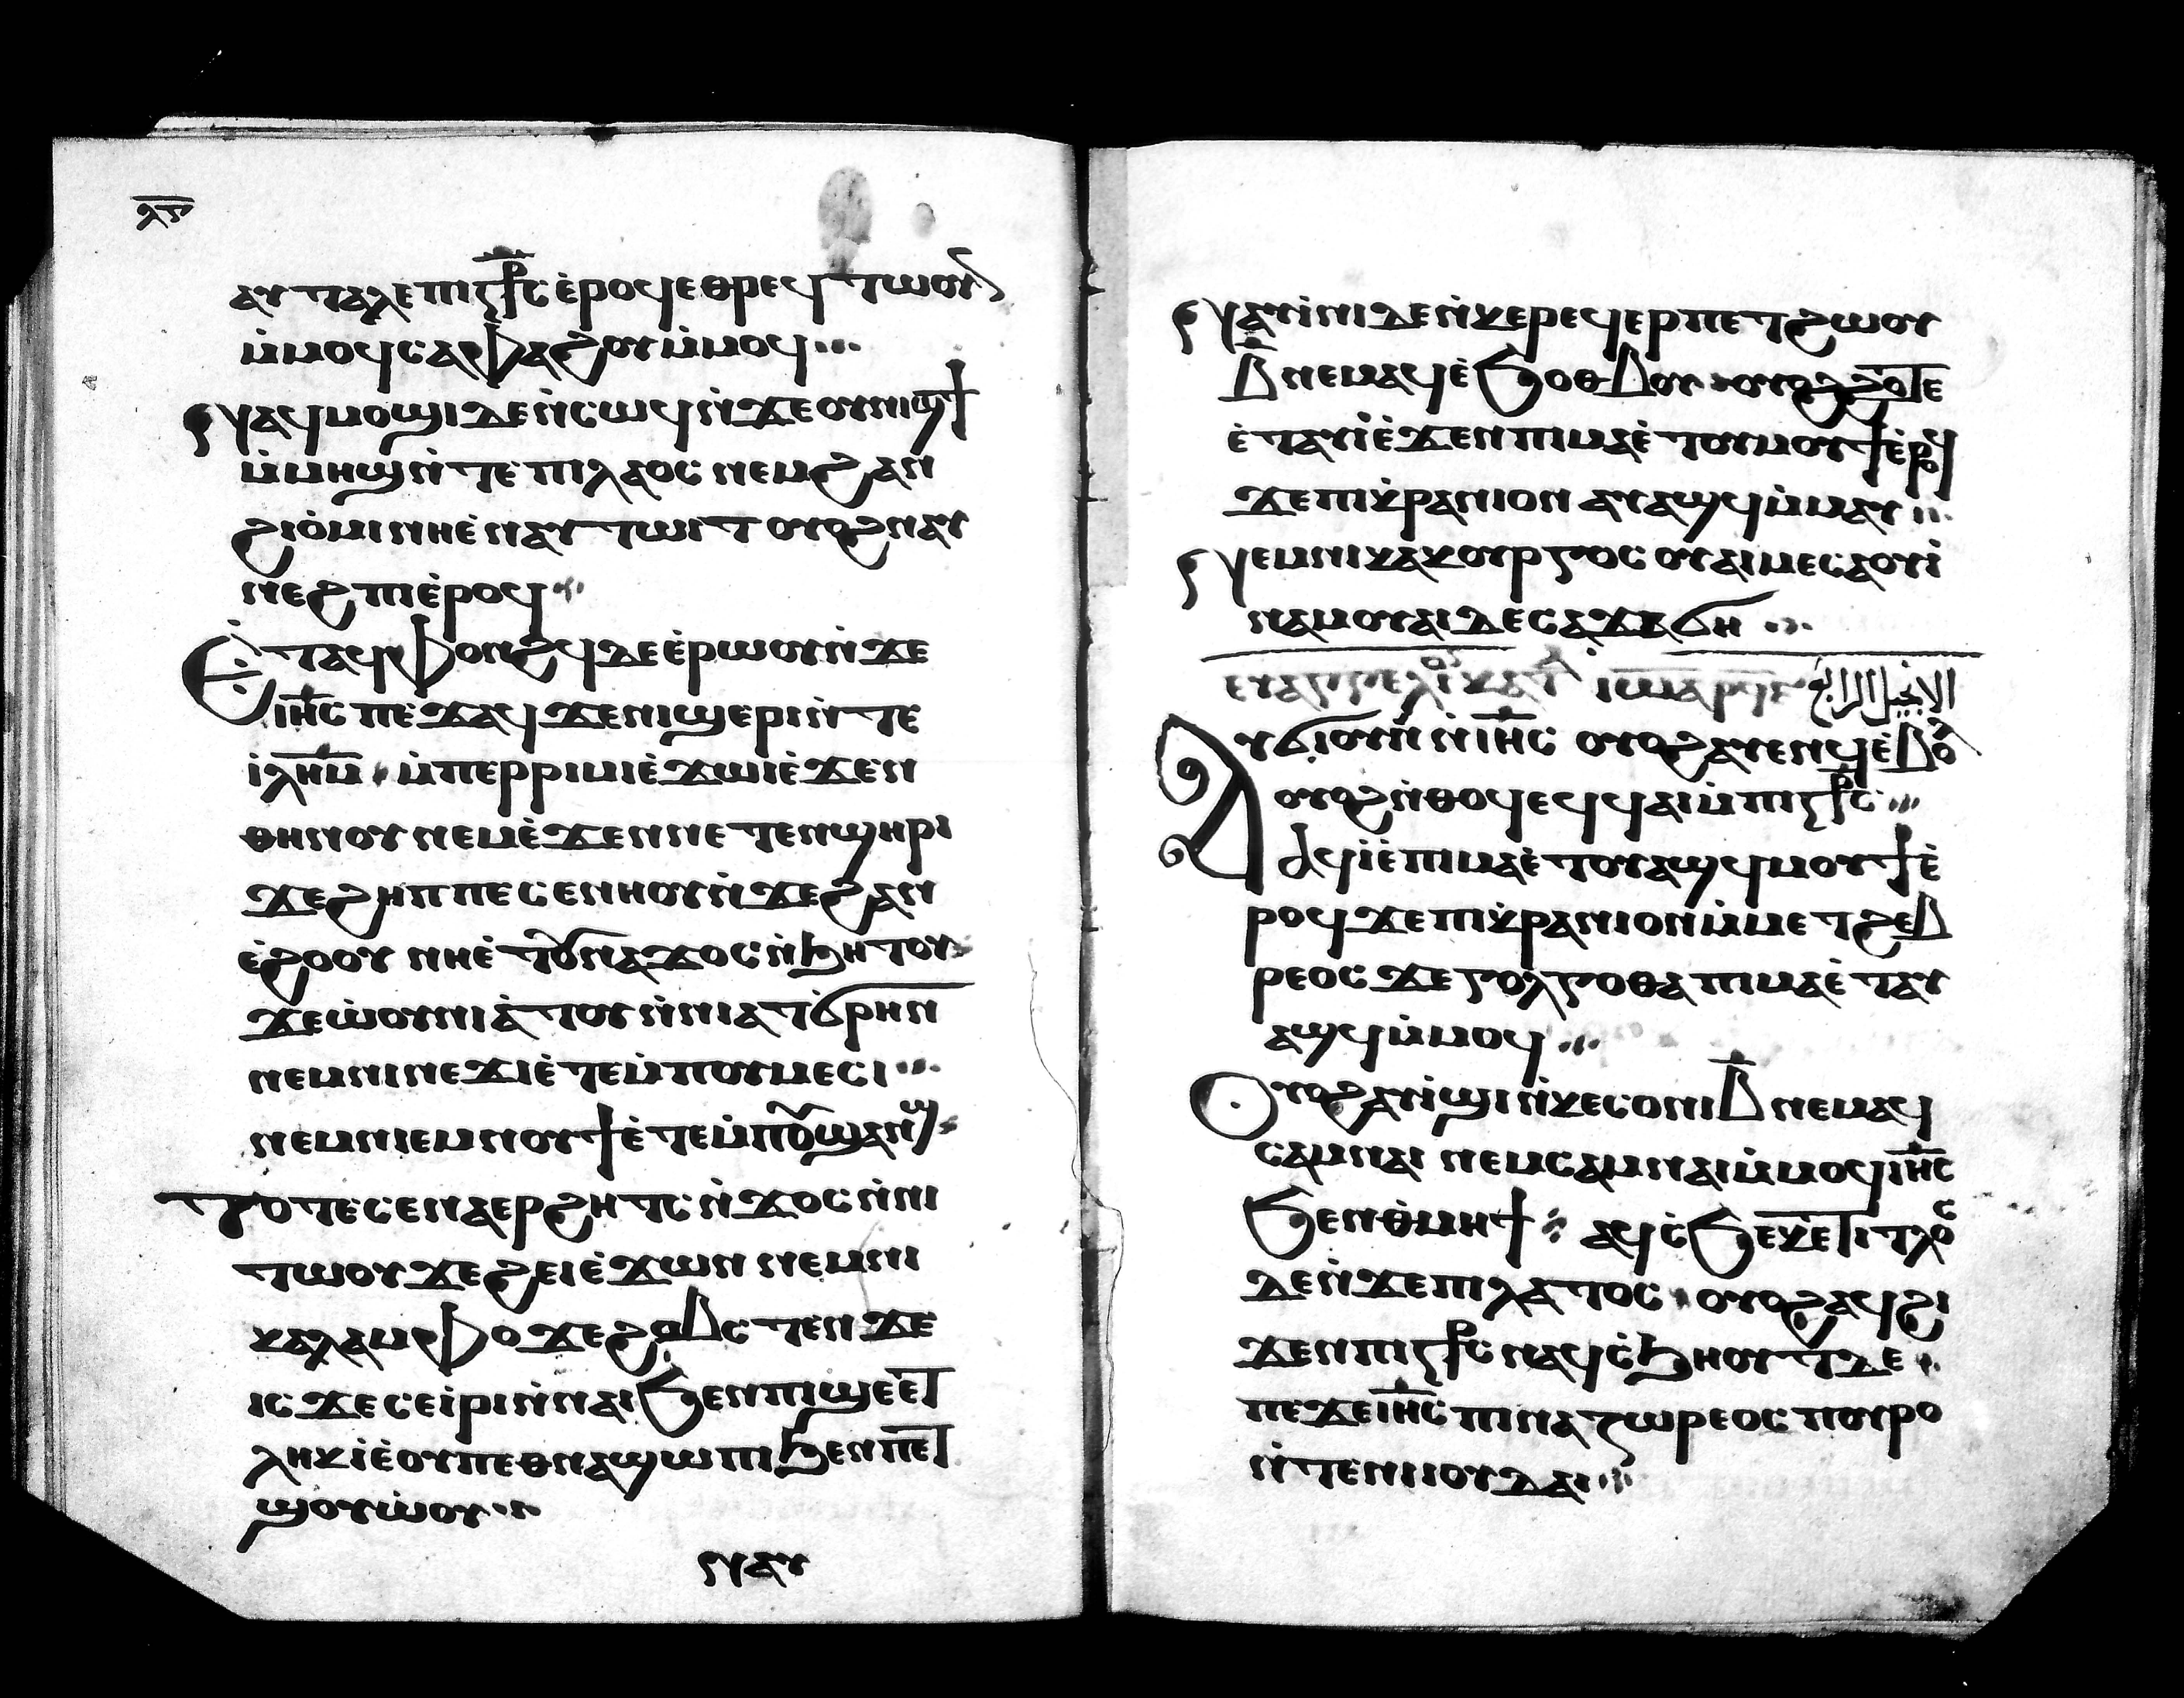 ⲗⲋ
ⲁⲩⲧⲁⲗⲉ ⲡⲓⲥ̅⳨̅ⲥ̅ ⲉ̀ⲣⲟϥ ⲉⲑⲣⲉϥⲧⲱⲟⲩⲛ
ⲙ̀ⲙⲟϥ ⲥⲁⲫⲁϩⲟⲩ ⲙ̀ⲙⲟϥ
ⲛⲁϥⲙⲟϣⲓ ⲇⲉ ⲛ̀ⲥⲱϥ ⲛ̀ϫⲉ ⲟⲩⲛⲓϣϯ
ⲙ̀ⲙⲏϣ ⲛ̀ⲧⲉ ⲡⲓⲗⲁⲟⲥ ⲛⲉⲙ ϩⲁⲛ
ϩⲓⲟ̀ⲙⲓ ⲛⲏⲉ̀ⲛⲁⲩⲧⲱⲓⲧ ⲟⲩⲟϩ ⲛⲁⲩ
ⲛⲉϩⲡⲓ ⲉ̀ⲣⲟϥ
Ⲉ̀ⲧⲁϥⲫⲟⲛϩϥ ⲇⲉ ⲉ̀ⲣⲱⲟⲩ ⲛ̀ϫⲉ
ⲓⲏ̅ⲥ̅ ⲡⲉϫⲁϥ ϫⲉ ⲛⲓϣⲉⲣⲓ ⲛ̀ⲧⲉ
ⲓ̀ⲗ̅ⲏ̅ⲙ̅ ⲙ̀ⲡⲉⲣⲣⲓⲙⲓ ⲉ̀ϫⲱⲓ ⲉ̀ϫⲉⲛ
ⲑⲏⲛⲟⲩ ⲛⲉⲙ ⲉ̀ϫⲉⲛ ⲛⲉⲧⲉⲛϣⲏⲣⲓ
ϫⲉ ϩⲏⲡⲡⲉ ⲥⲉⲛⲏⲟⲩ ⲛ̀ϫⲉ ϩⲁⲛ
ⲉ̀ϩⲟⲟⲩ ⲛⲏⲉ̀ⲧⲟⲩⲛⲁϫⲟⲥ ⲛ̀ϧⲏⲧⲟⲩ
ϫⲉ ⲱ̀ⲟⲩⲛⲓⲁ̀ⲧⲟⲩ ⲛ̀ⲛⲓⲁⲧϭⲣⲏⲛ
ⲛⲉⲙ ⲛⲓⲛⲉϫⲓ ⲉ̀ⲧⲉⲙ̀ⲡⲟⲩⲙⲉⲥⲓ
ⲛⲉⲙ ⲛⲓⲉⲙⲛⲟⲩϯ ⲉ̀ⲧⲉⲙ̀ⲡⲟⲩϣⲁⲛϣ
Ⲧⲟⲧⲉ ⲥⲉⲛⲁⲉⲣϩⲏⲧⲥ ⲛ̀ϫⲟⲥ ⲛ̀ⲛⲓ
ⲧⲱⲟⲩ ϫⲉ ϩⲉⲓ ⲉ̀ϫⲱⲛ ⲛⲉⲙ ⲛⲓ
ⲕⲁⲗⲁⲙⲫⲟ ϫⲉ ϩⲟⲃⲥⲧⲉⲛ ϫⲉ
ⲓⲥϫⲉ ⲥⲉⲓ̀ⲣⲓ ⲛ̀ⲛⲁⲓ ϧⲉⲛ ⲡⲓϣⲉ ⲉⲧ
ⲗⲏⲕ ⲓ̀ⲉ̀ ⲟⲩ ⲡⲉⲑⲛⲁϣⲱⲡⲓ ϧⲉⲛ ⲡⲉⲧ
ϣⲟⲩⲱ̀ⲟⲩ
ⲛⲁⲩ
Ⲛⲁⲩⲓ̀ⲛⲓ ⲇⲉ ⲛ̀ⲕⲉⲣⲉϥⲉⲣⲡⲉⲧϩⲱⲟⲩ
ⲃ̅ ⲛⲉⲙⲁϥ ⲉ̀ϧⲟⲑⲃⲟⲩ ⲟⲩⲟϩ ϩⲟⲧⲉ
ⲉ̀ⲧⲁⲩⲓ̀ ⲉ̀ϫⲉⲛ ⲡⲓⲙⲁ ⲉ̀ⲧⲟⲩⲙⲟⲩϯ ⲉ̀ⲣⲟϥ
ϫⲉ ⲡⲓⲕ̀ⲣⲁⲛⲓⲟⲛ ⲁⲩⲁϣϥ ⲙ̀ⲙⲁⲩ
Ⲛⲉⲙ ⲛⲓⲕⲁⲕⲟⲩⲣⲅⲟⲥ ⲟⲩⲁⲓ ⲙⲉⲛ ⲥⲁⲟⲩⲓ̀
ⲛⲁⲙ ⲟⲩⲁⲓ ⲇⲉ ⲥⲁϫⲁϭⲏ
ⲉⲩⲁⲅⲅⲉⲗⲓⲟⲛ ⲕⲁⲧⲁ ⲓⲱⲁ الانجيل
Ⲁⲩϭⲓ ⲟⲩⲛ ⲛ̀ⲓⲏ̅ⲥ̅ ⲟⲩⲟϩ ⲁⲩⲉⲛϥ ⲉ̀ⲃⲟⲗ
ⲟⲩⲟϩ ⲛ̀ⲑⲟϥ ⲉϥϥⲁⲓ ⲙ̀ⲡⲓⲥ̅⳨̅ⲥ̅
ⲁϥⲓ̀ ⲉ̀ⲡⲓⲙⲁ ⲉ̀ⲧⲟⲩⲁϣϥ ⲙⲟⲩϯ ⲉ̀
ⲣⲟϥ ϫⲉ ⲡⲓⲕ̀ⲣⲁⲛⲓⲟⲛ ⲙ̀ⲙⲉⲧϩⲉⲃ
ⲣⲉⲟⲥ ϫⲉ ⲅⲟⲗⲅⲟⲑⲁ ⲡⲓⲙⲁ ⲉ̀ⲧⲁⲩ
ⲁϣϥ ⲙ̀ⲙⲟϥ
Ⲟⲩⲟϩ ⲁⲩⲓ̀ϣⲓ ⲛ̀ⲕⲉⲥⲟⲛⲓ ⲃ̅ ⲛⲉⲙⲁϥ
ⲥⲁⲙⲛⲁⲓ ⲛⲉⲙ ⲥⲁⲙⲛⲁⲓ ⲙ̀ⲙⲟϥ ⲓⲏ̅ⲥ̅
ϧⲉⲛ ⲑ̀ⲙⲏϯ ⲁϥⲥ̀ϧⲉ ⲕⲉⲧⲓⲧⲗⲟⲥ
ⲇⲉ ⲛ̀ϫⲉ ⲡⲓⲗⲁⲧⲟⲥ ⲟⲩⲟϩ ⲁϥϩⲓ
ϫⲉⲛ ⲡⲓⲥ̅⳨̅ⲥ̅ ⲛⲁϥⲥ̀ϧⲏⲟⲩⲧ ⲇⲉ
ⲡⲉ ϫⲉ ⲓⲏ̅ⲥ̅ ⲡⲓⲛⲁⲍⲱⲣⲉⲟⲥ ⲡⲟⲩⲣⲟ
ⲛ̀ⲧⲉ ⲛⲓⲓⲟⲩⲇⲁⲓ